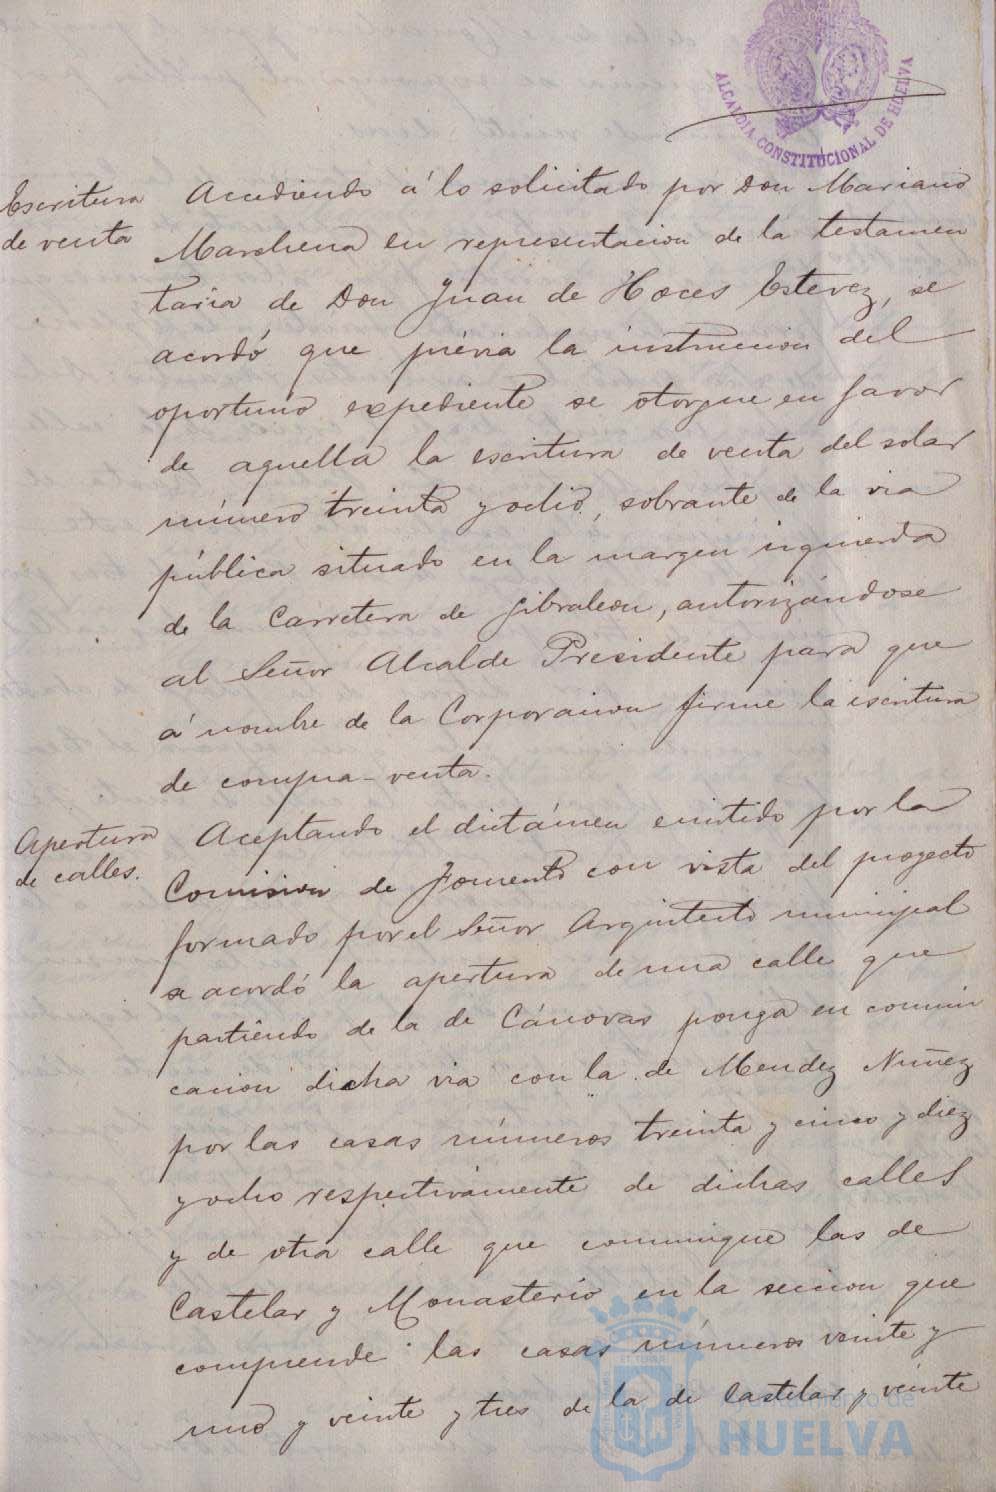 ALCALDIA CONSTITUCIONAL DE HUELVA
Escritura
de venta
Accediendo á lo solicitado por Don Mariano
Marchena en representacion de la testamen
taria de Don Juan de Hoces Estevez, se
acordó que prévia la instruccion del
oportuno expediente se otorgue en favor
de aquella la escritura de venta del solar
número treinta y ocho, sobrante de la via
pública situado en la margen izquierda
de la Carretera de Gibraleon, autorizándose
al Señor Alcalde Presidente para que
á nombre de la Corporacion firme la escritura
de compra-venta.
Apertura
de calles.
Aceptando el dictámen emitido por la
Comision de Fomento con vista del proyecto
formado por el Señor Arquitecto municipal
se acordó la apertura de una calle que
partiendo de la de Cánovas ponga en comuni
cacion dicha via con la de Mendez Nuñez
por las casas números treinta y cinco y diez
y ocho respectivamente de dichas calles
y de otra calle que comunique las de
Castelar y Monasterio en la seccion que
comprende las casas números veinte y
uno y veinte y tres de la de Castelar y veinte
Ayuntamiento de
HUELVA